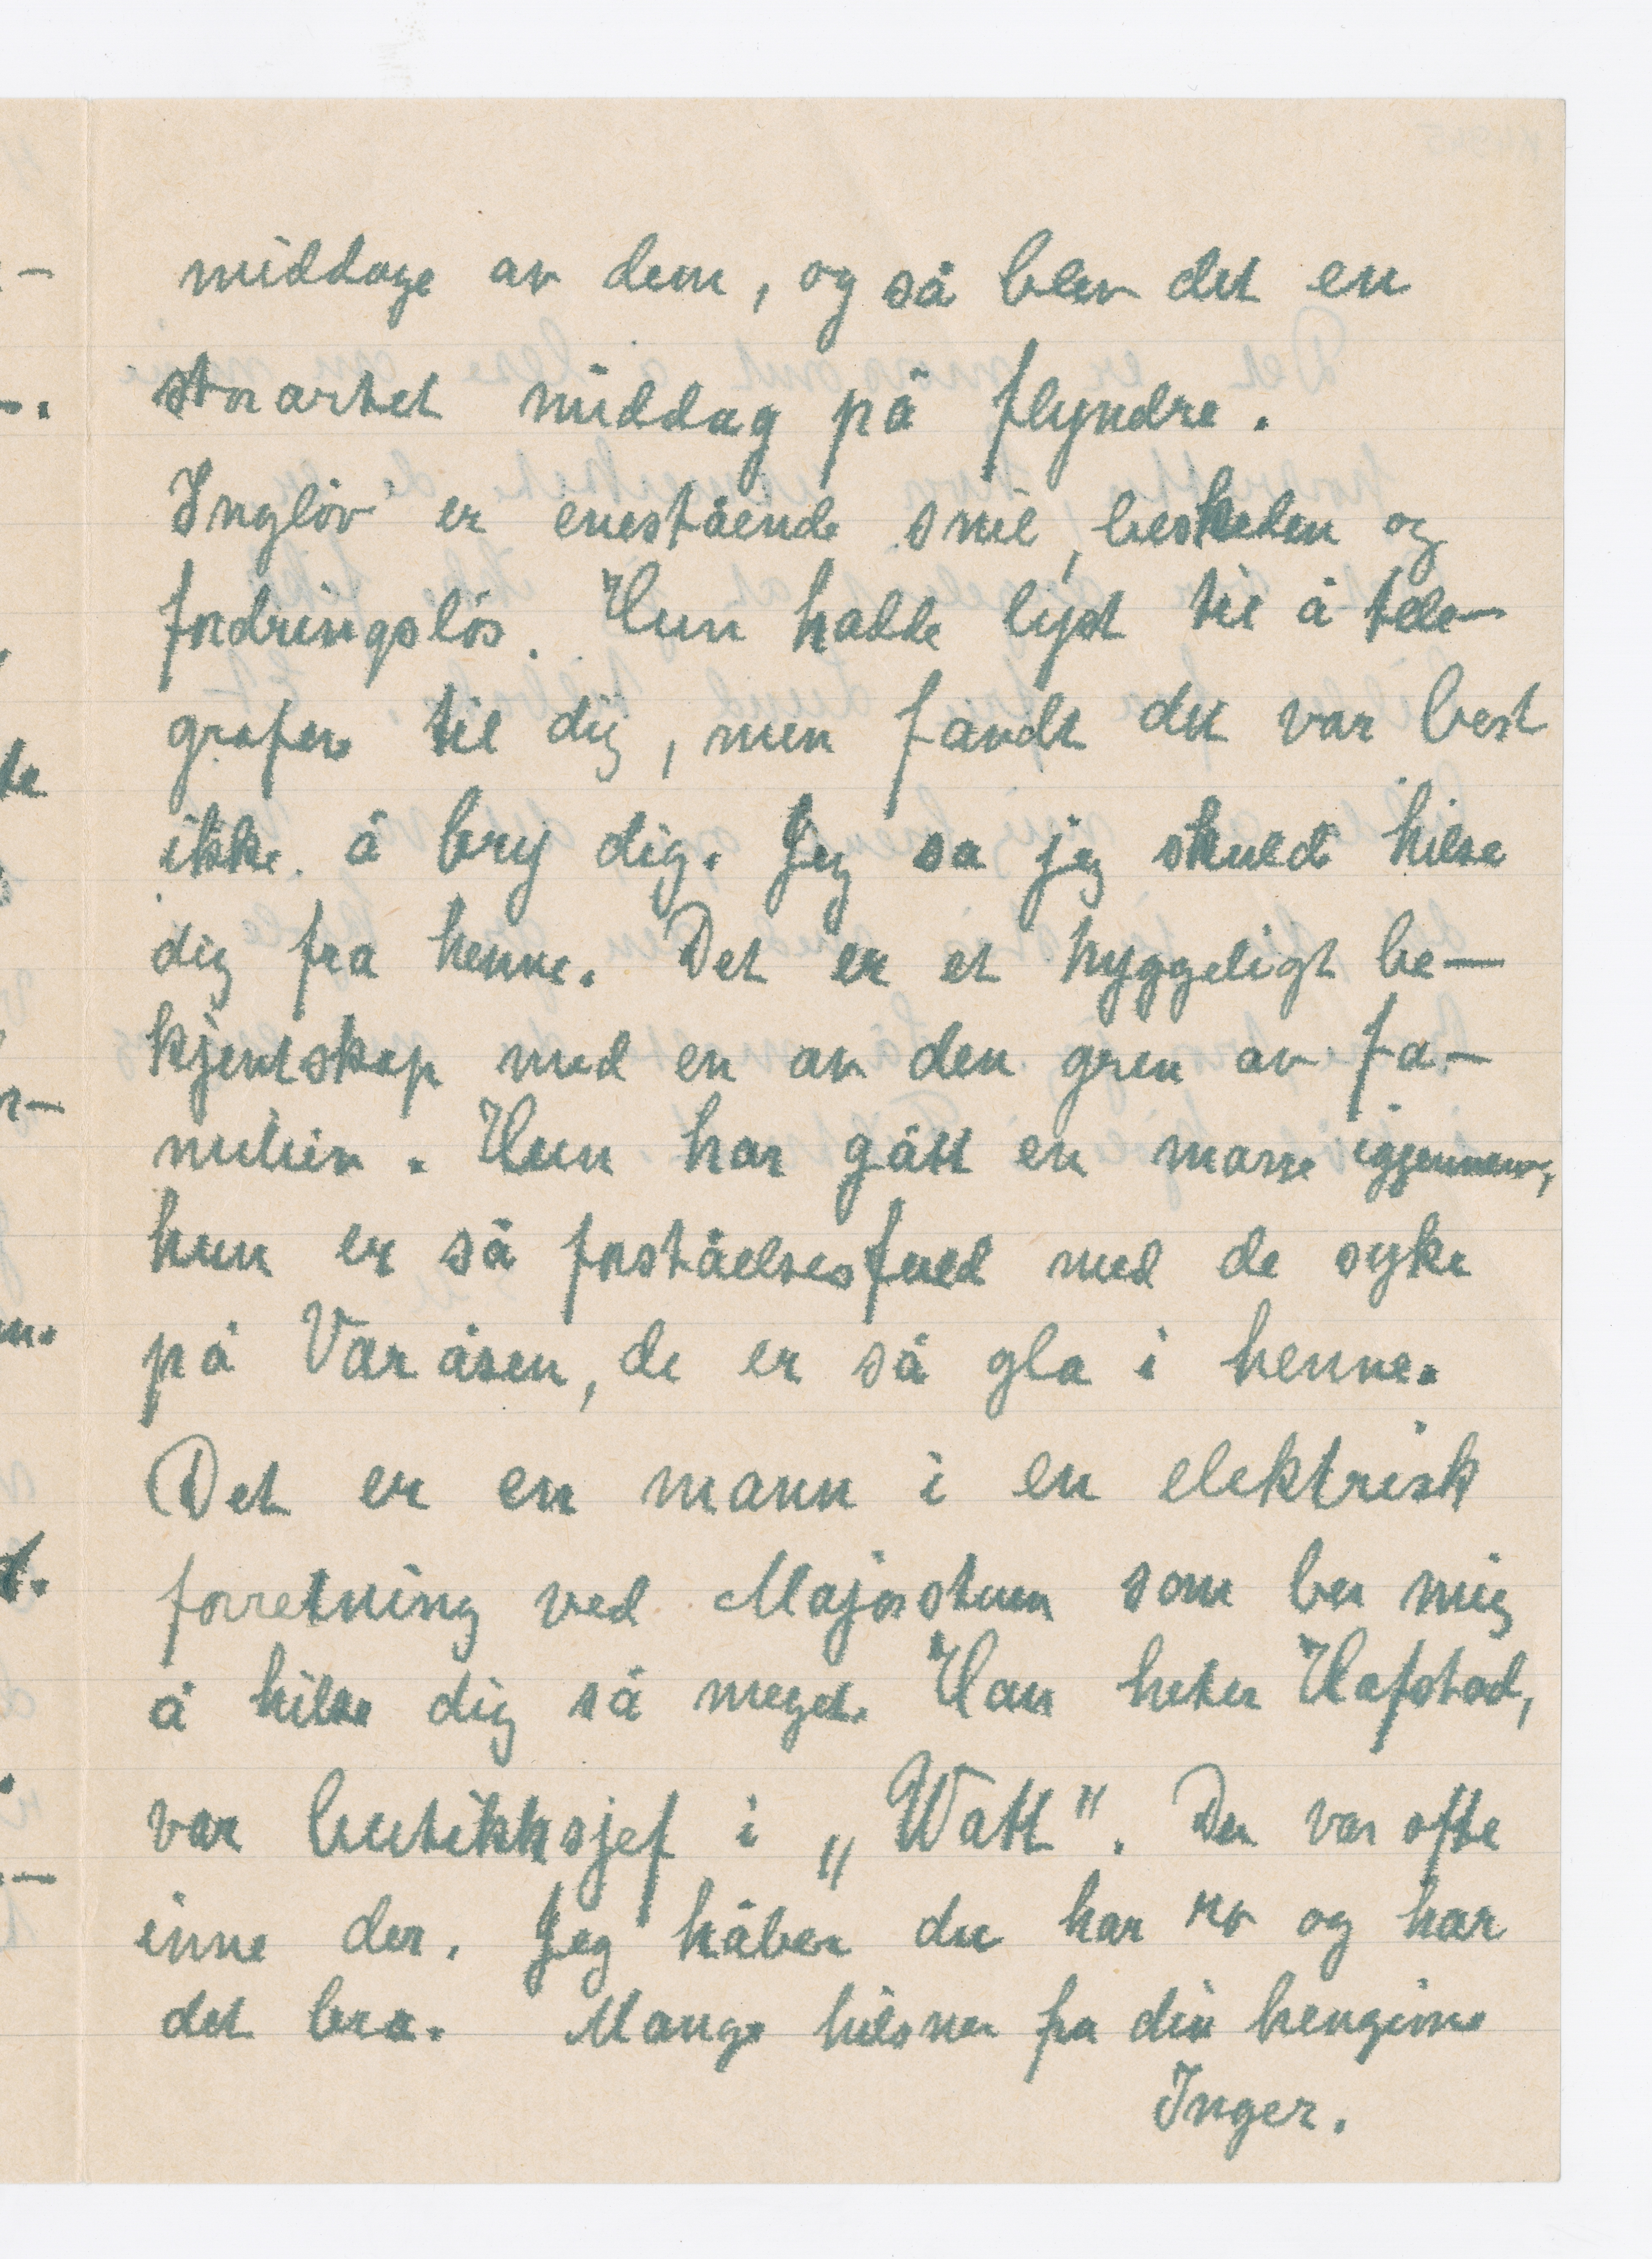 middage av dem, og så blev det en
storartet middag på flyndre.
Ingløv er enestående snil, beskeden og
fordringsløs. Hun hadde lyst til å tele-
grafere til dig, men fandt det var best
ikke å bry dig. Jeg sa jeg skulde hilse
dig fra henne. Det er et hyggeligt be-
kjentskap med en av den gren av fa-
milien. Hun har gått en masse igjennem,
hun er så forståelsesfuld med de syke
på Vardåsen, de er så gla i henne.
Det er en mann i en elektrisk
forretning ved Majorstuen som ber mig
å hilse dig så meget. Han heter Hafstad,
var butikksjef i „Watt". Du var ofte
inne der. Jeg håber du har ro og har
det bra. Mange hilsner fra din hengivne
Inger.